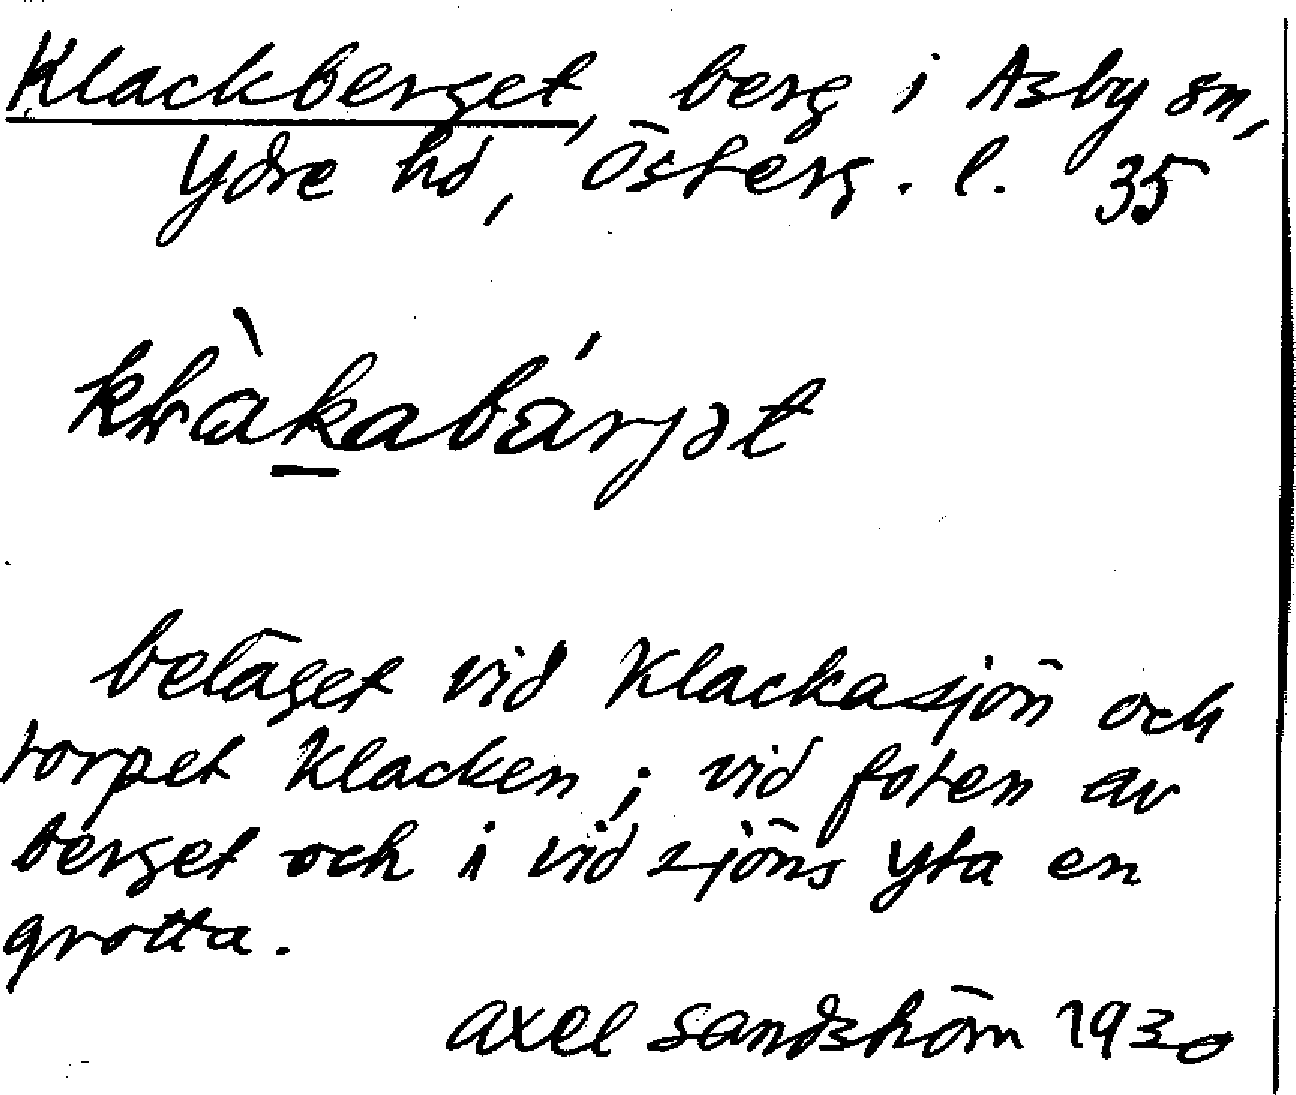 Klackberget, berg i Asby sn,
Ydre hd, Österg. l. 35
beläget vid Klackasjön och
torpet Klacken; vid foten av
berget och i vid sjöns yta en
grotta.
Axel Sandström 1930